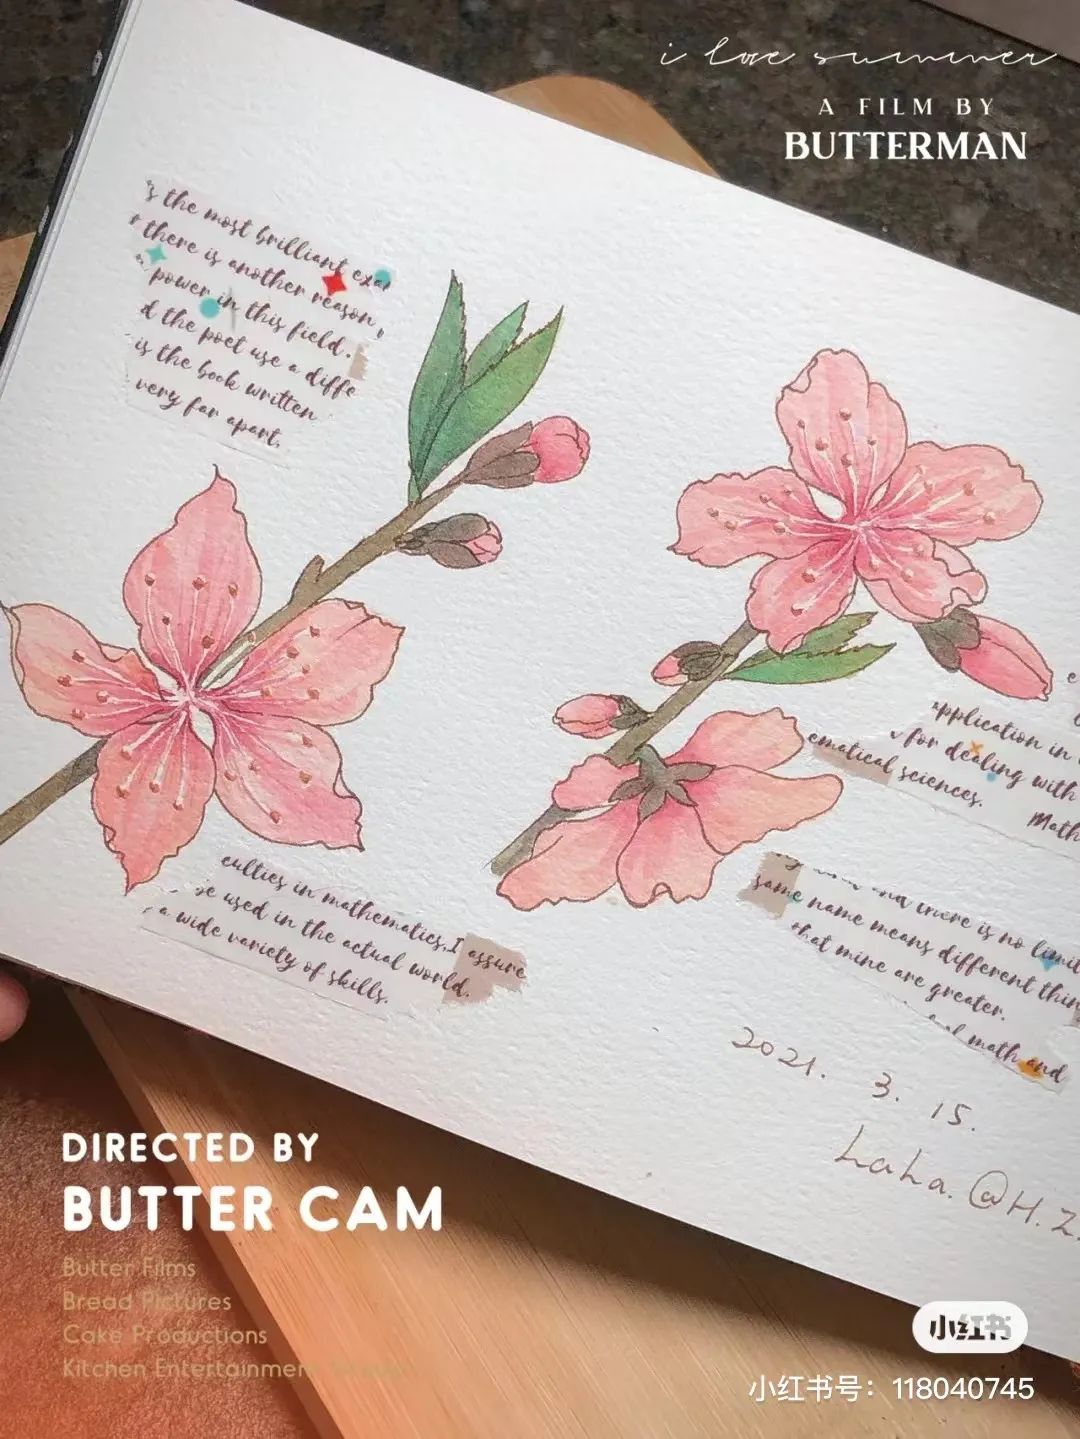 i love summer
A FILM BY
BUTTERMAN
's the most brilliant exa
there is another reason
power in this field.
d the poet use a diffe
is the book written
very far apart.
application in
for dealing with
ematical sciences.
Math
culties in mathematics,I assure
be used in the actual world.
a wide variety of skills.
and there is no limit
same name means different thin
that mine are greater.
math and
2021. 3. 15.
LaLa.@H.Z.
DIRECTED BY
BUTTER CAM
Butter Films
Bread Pictures
Cake Productions
Kitchen Entertainment
小红书
小红书号：118040745